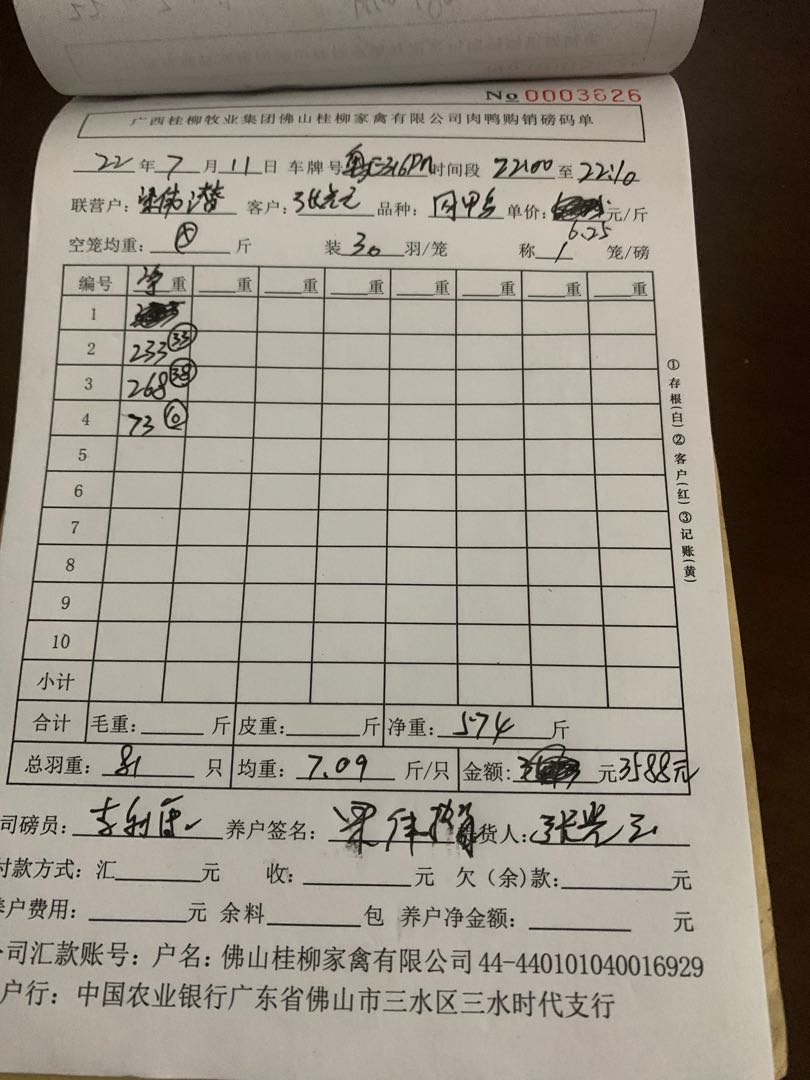 No 0003626
广西桂柳牧业集团佛山桂柳家禽有限公司肉鸭购销磅码单
22年7月11日 车牌号 时间段 22:00至22:10
联营户: 梁伟 客户: 张 品种: 单价: 元/斤
6.25
空笼均重: 斤 装30羽/笼 称1笼/磅
编号 净重 重 重 重 重 重 重 重
1
2 233 33
3 268 38
4 73 10
5
6
7
8
9
10
小计
合计 毛重: 斤 皮重: 斤 净重: 574 斤
总羽重: 81 只 均重: 7.09 斤/只 金额: 元 3588元
司磅员: 李 养户签名: 梁伟 货人: 张
付款方式: 汇 元 收: 元 欠(余)款: 元
养户费用: 元 余料 包 养户净金额: 元
公司汇款账号: 户名: 佛山桂柳家禽有限公司 44-440101040016929
户行: 中国农业银行广东省佛山市三水区三水时代支行
①存根(白)②客户(红)③记账(黄)